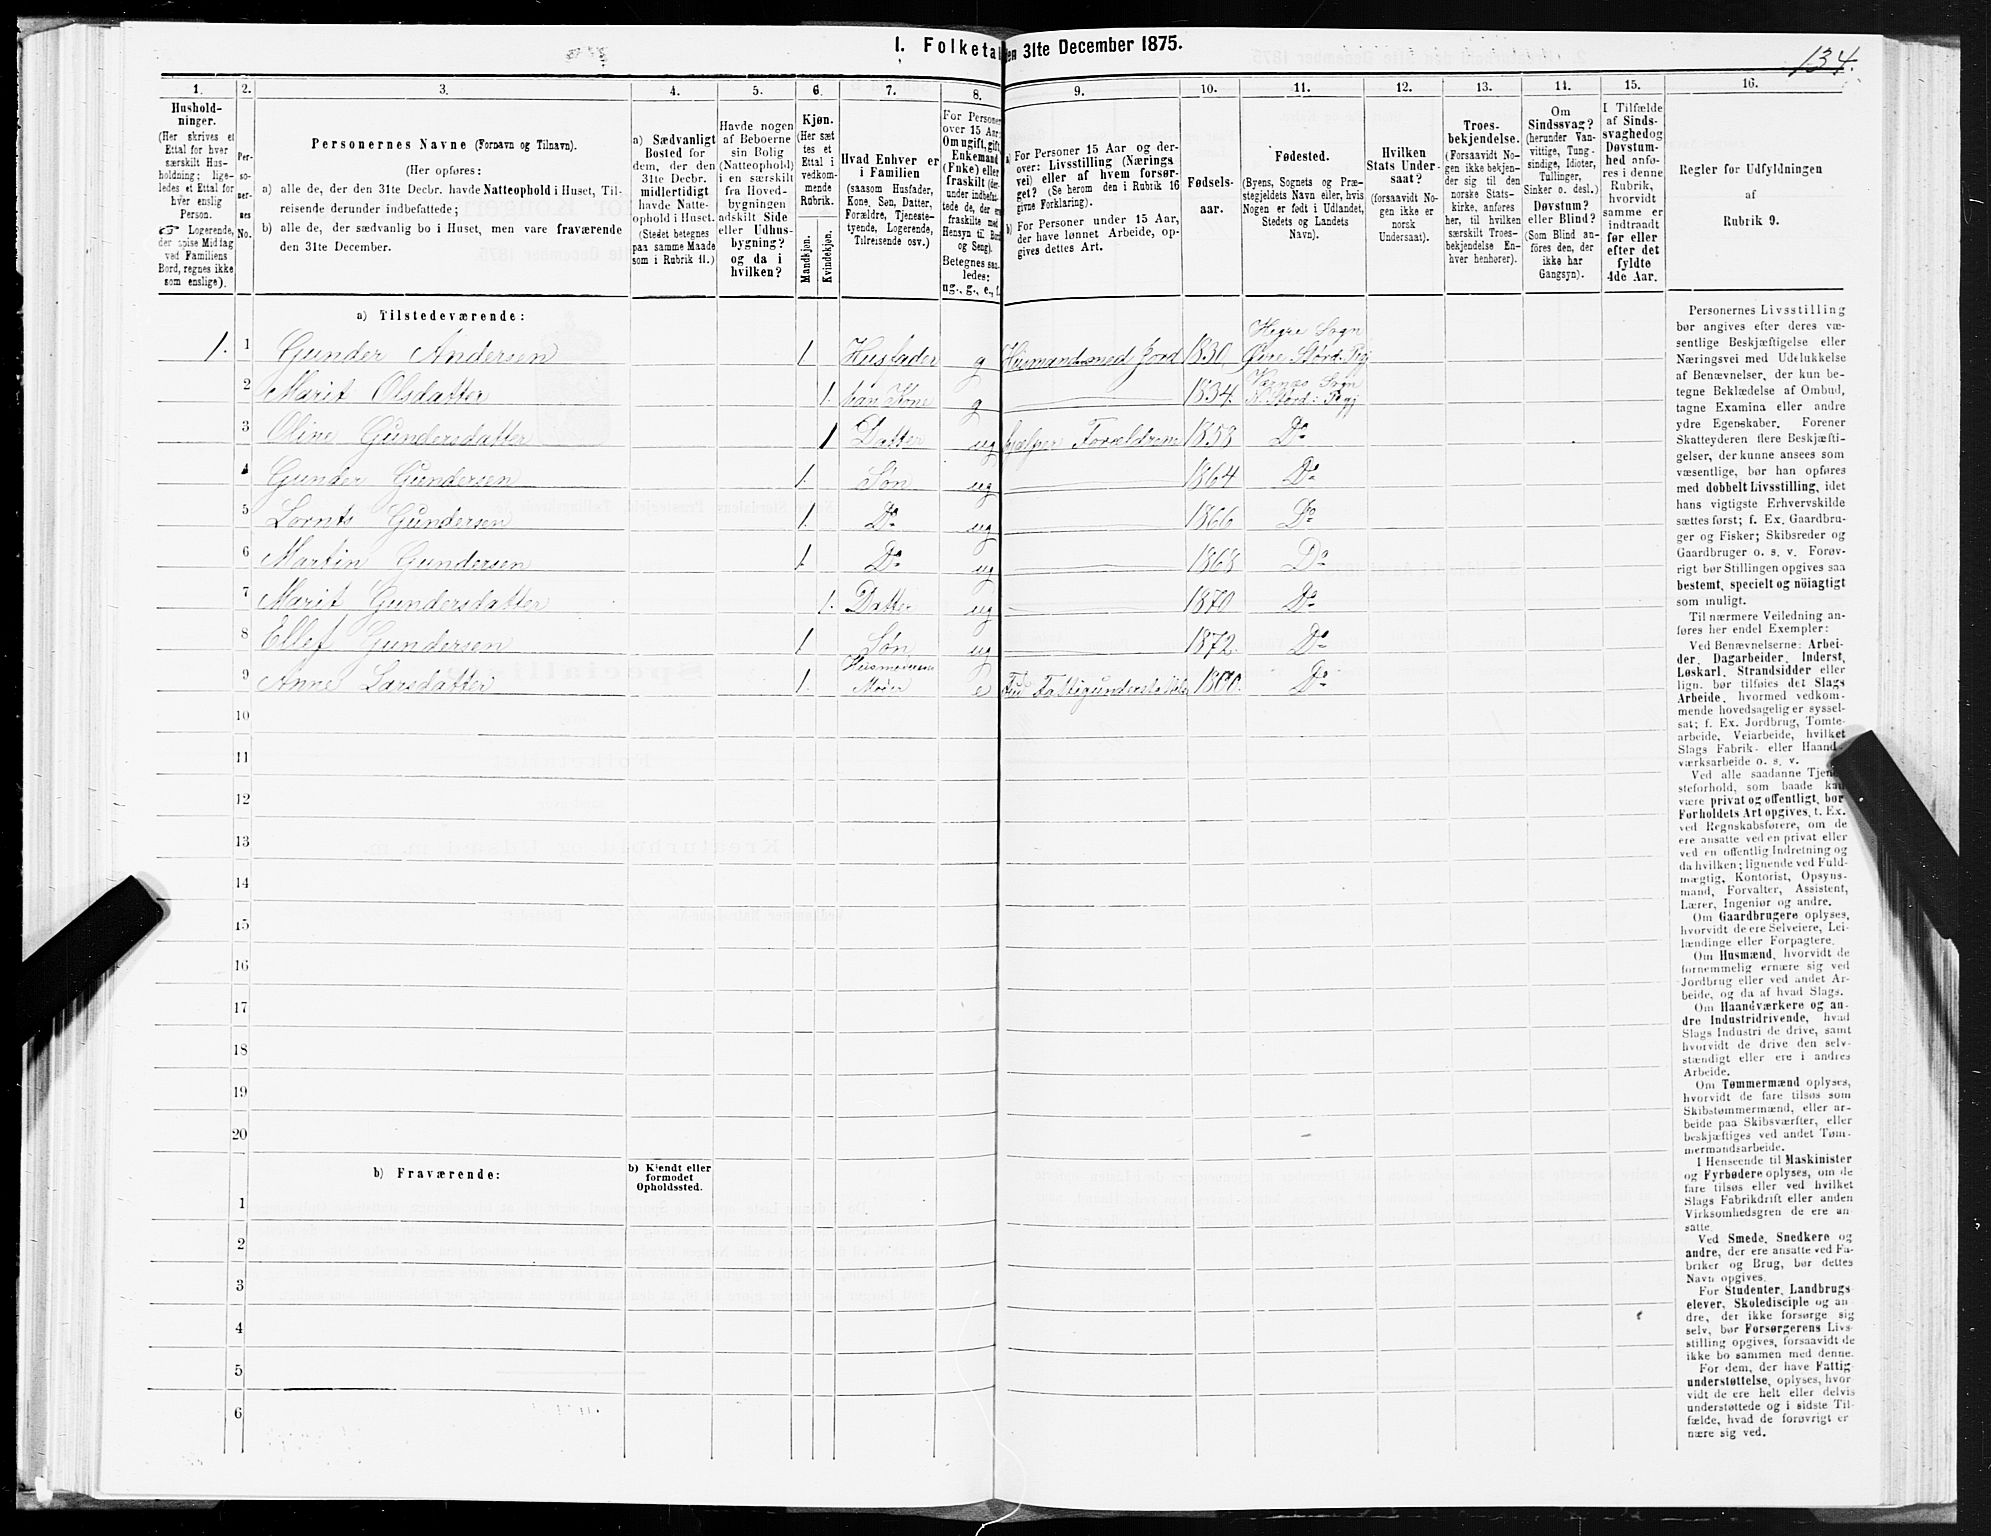 1. Folketal den 31te December 1875.
134.
1.
2.
3.
4.
5.
6.
7.
8.
9.
10.
11.
12.
13.
14.
15.
16.
Hushold-
ninger.
(Her skrives et
Ettal for hver
særskilt Hus-
holdning; lige-
ledes et Ettal for
hver enslig
Person.
☞ Logerende,
der spise Middag
ved Familiens
Bord, regnes ikke
som enslige).
Per-
so-
ner-
nes
No.
Personernes Navne (Fornavn og Tilnavn).
(Her opføres:
a) alle de, der den 31te Decbr. havde Natteophold i Huset, Til-
reisende derunder indbefattede;
b) alle de, der sædvanlig bo i Huset, men vare fraværende
den 31te December.
a) Sædvanligt
Bosted for
dem, der den
31te Decbr.
midlertidigt
havde Natte-
ophold i Huset.
(Stedet betegnes
paa samme Maade
som i Rubrik 11.)
Havde nogen
af Beboerne
sin Bolig
(Natteophold)
i en særskilt
fra Hoved-
bygningen
adskilt Side
eller Udhus-
bygning?
og da i
hvilken?
Kjøn.
(Her sæt
tes et
Ettal i
vedkom-
mende
Rubrik.
Mandkjøn.
Kvindekjøn.
Hvad Enhver er
i Familien
(saasom Husfader,
Kone, Søn, Datter,
Forældre, Tjeneste-
tyende, Logerende,
Tilreisende osv.)
For Personer
over 15 Aar:
Om ugift, gift,
Enkemand
(Enke) eller
fraskilt (der-
under indbefat-
tede de, der er
fraskilte med
Hensyn til Bord
og Seng).
Betegnes saa-
ledes:
ug., g., e., f.
a) For Personer 15 Aar og der-
over: Livsstilling (Nærings
vei) eller af hvem forsør-
get? (Se herom den i Rubrik 16
givne Forklaring).
b) For Personer under 15 Aar,
der have lønnet Arbeide, op-
gives dettes Art.
Fødsels-
aar.
Fødested.
(Byens, Sognets og Præ-
stegjeldets Navn eller, hvis
Nogen er født i Udlandet,
Stedets og Landets
Navn).
Hvilken
Stats Under-
saat?
(forsaavidt No-
gen ikke er
norsk
Undersaat).
Troes-
bekjendelse.
(Forsaavidt No-
gen ikke bekjen-
der sig til den
norske Stats-
kirke, anføres
her, til hvilken
særskilt Troes-
bekjendelse En-
hver henhører).
Om
Sindssvag?
(herunder Van-
vittige, Tung-
sindige, Idioter,
Tullinger,
Sinker o. desl.)
Døvstum?
eller Blind?
(Som Blind an-
føres den, der
ikke har
Gangsyn).
I Tilfælde
af Sinds-
svaghed og
Døvstum-
hed anfø-
res i denne
Rubrik,
hvorvidt
samme er
indtraadt
før eller
efter det
fyldte
4de Aar.
Regler for Udfyldningen
af
Rubrik 9.
a) Tilstedeværende:
1. 1 Gunder Andersen 1 Husfader g Husmand med Jord 1830 Hegre Sogn Øvre Størd. Prgj
2 Marit Olsdatter 1. hans Kone g 1834. Værnes Sogn N. Størd: Prgj
3 Oline Gundersdatter 1 Datter ug hjælper Forældrene 1858 Do
4 Gunder Gundersen 1. Søn ug 1864 Do
5 Lornts Gundersen 1. Do ug 1866 Do
6 Martin Gundersen 1 Do ug 1868 Do
7 Marit Gundersdatter 1. Datter ug 1870 Do
8 Ellef Gundersen 1 Søn ug 1872. Do
9 Anne Larsdatter 1. Moder e 1800. Do
10
11
12
13
14
15
16
17
18
19
20
b) Fraværende:
b) Kjendt eller
formodet
Opholdssted.
1
2
3
4
5
6
Personernes Livsstilling
bør angives efter deres væ-
sentlige Beskjæftigelse eller
Næringsvei med Udelukkelse
af Benævnelser, der kun be-
tegne Beklædelse af Ombud,
tagne Examina eller andre
ydre Egenskaber. Forener
Skatteyderen flere Beskjæfti-
gelser, der kunne ansees som
væsentlige, bør han opføres
med dobbelt Livsstilling, idet
hans vigtigste Erhvervskilde
sættes først; f. Ex. Gaardbru-
ger og Fisker; Skibsreder og
Gaardbruger o. s. v. Forøv-
rigt bør Stillingen opgives saa
bestemt, specielt og nöiagtigt
som muligt.
Til nærmere Veiledning an-
føres her endel Exempler:
Ved Benævnelserne: Arbei-
der, Dagarbeider, Inderst,
Løskarl, Strandsidder eller
lign. bør tilføies det Slags
Arbeide, hvormed vedkom-
mende hovedsagelig er syssel-
sat; f. Ex. Jordbrug, Tomte-
arbeide, Veiarbeide, hvilket
Slags Fabrik- eller Haand-
værksarbeide o. s. v.
Ved alle saadanne Tjene-
steforhold, som baade kan
være privat og offentligt, bør
Forholdets Art opgives, t. Ex.
ved Regnskabsførere, om de
ere ansatte ved en privat eller
ved en offentlig Indretning og
da hvilken; lignende ved Fuld-
mægtig, Kontorist, Opsyns-
mand, Forvalter, Assistent,
Lærer, Ingeniør og andre.
Om Gaardbrugere oplyses,
hvorvidt de ere Selveiere, Lei-
lændinge eller Forpagtere.
Om Husmænd, hvorvidt de
fornemmelig ernære sig ved
Jordbrug eller ved andet Ar-
beide, og da af hvad Slags.
Om Haandværkere og an-
dre Industridrivende, hvad
Slags Industri de drive, samt
hvorvidt de drive den selv-
stændigt eller ere i andres
Arbeide.
Om Tømmermænd oplyses,
hvorvidt de fare tilsøs som
Skibstømmermænd, eller ar-
beide paa Skibsværfter, eller
beskjæftiges ved andet Tøm-
mermandsarbeide.
I Henseende til Maskinister
og Fyrbødere oplyses, om de
fare tilsøs eller ved hvilket
Slags Fabrikdrift eller anden
Virksomhedsgren de ere an-
satte.
Ved Smede, Snedkere og
andre, der ere ansatte ved Fa-
briker og Brug, bør dettes
Navn opgives.
For Studenter, Landbrugs
elever, Skoledisciple og an-
dre, der ikke forsørge sig
selv, bør Forsørgerens Livs-
stilling opgives, forsaavidt de
ikke bo sammen med denne.
For dem, der have Fattig-
understøttelse, oplyses, hvor-
vidt de ere helt eller delvis
understøttede og i sidste Til-
fælde, hvad de forøvrigt er
nære sig ved.